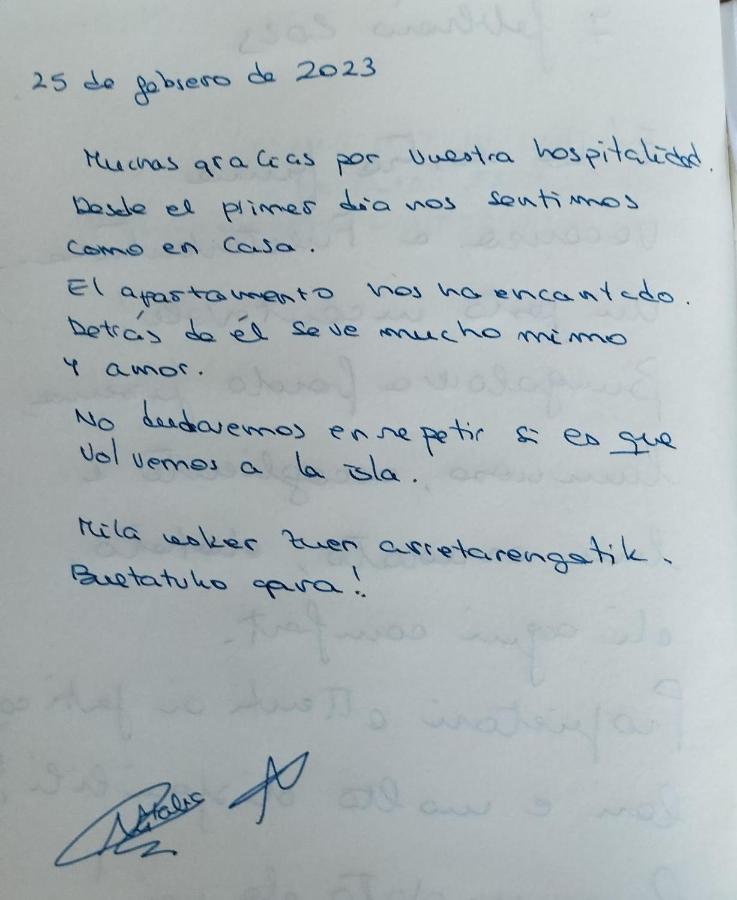 25 de febrero de 2023
Muchas gracias por vuestra hospitalidad.
Desde el primer dia nos sentimos
como en casa.
El apartamento nos ha encantado.
Detrás de él se ve mucho mimo
y amor.
No dudaremos en repetir si es que
volvemos a la isla.
Mila esker zuen arretarengatik.
Bueltatuko gara!